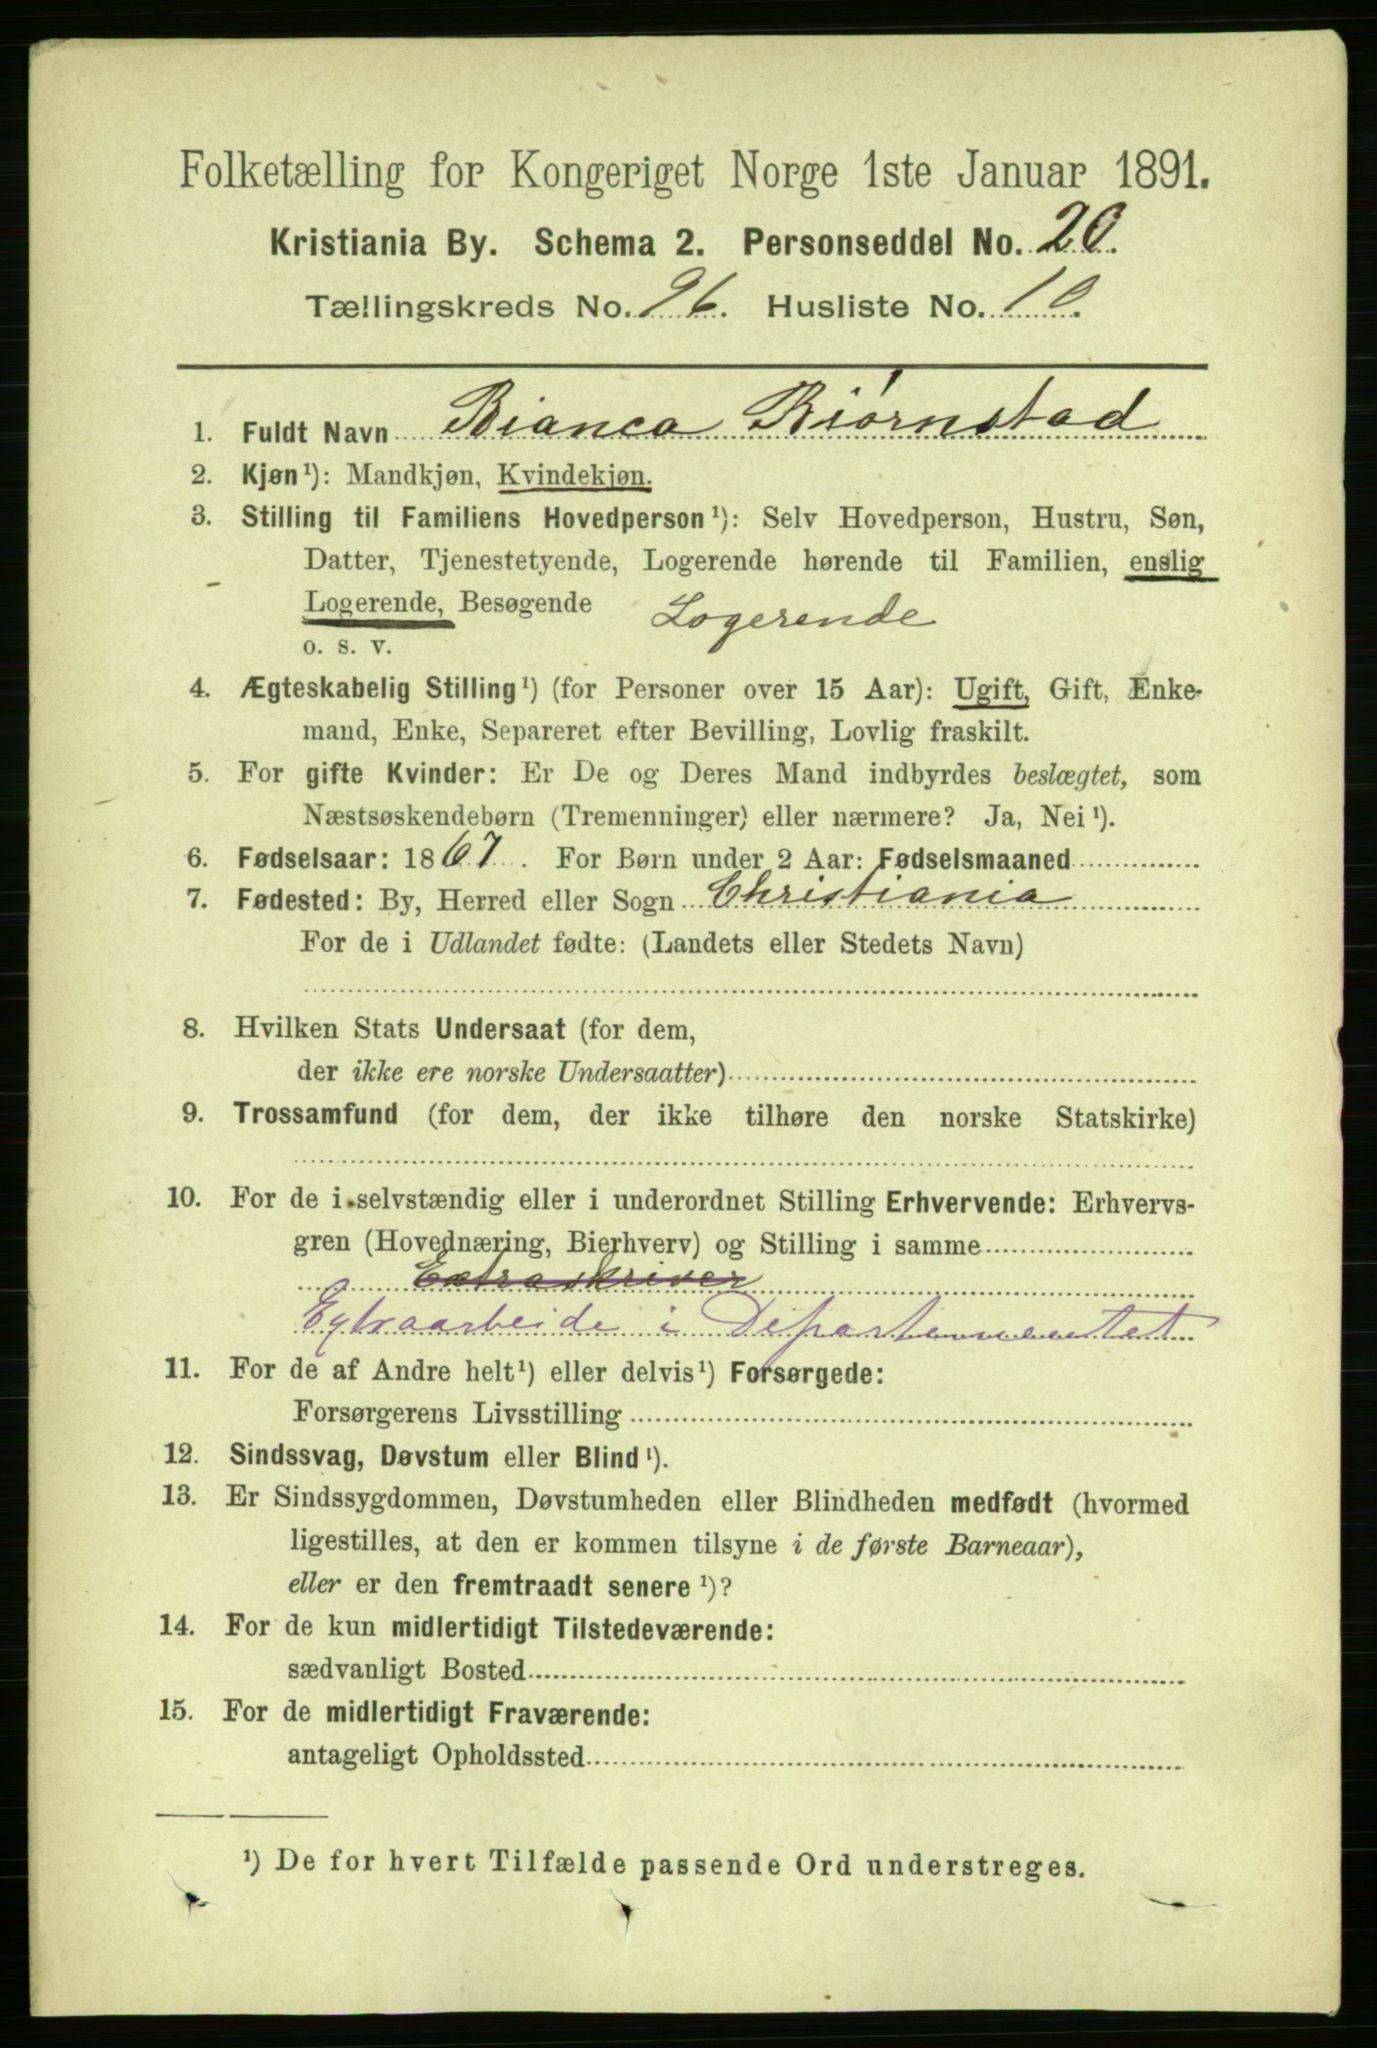 Folketælling for Kongeriget Norge 1ste Januar 1891.
Kristiania By. Schema 2. Personseddel No. 20.
Tællingskreds No. 96. Husliste No. 10.
1. Fuldt Navn Bianca Biørnstad
2. Kjøn¹): Mandkjøn, Kvindekjøn.
3. Stilling til Familiens Hovedperson¹): Selv Hovedperson, Hustru, Søn,
Datter, Tjenestetyende, Logerende hørende til Familien, enslig
Logerende, Besøgende Logerende
o. s. v.
4. Ægteskabelig Stilling¹) (for Personer over 15 Aar): Ugift, Gift, Enke-
mand, Enke, Separeret efter Bevilling, Lovlig fraskilt.
5. For gifte Kvinder: Er De og Deres Mand indbyrdes beslægtet, som
Næstsøskendebørn (Tremenninger) eller nærmere? Ja, Nei¹).
6. Fødselsaar: 1867. For Børn under 2 Aar: Fødselsmaaned
7. Fødested: By, Herred eller Sogn Christiania
For de i Udlandet fødte: (Landets eller Stedets Navn)
8. Hvilken Stats Undersaat (for dem,
der ikke ere norske Undersaatter)
9. Trossamfund (for dem, der ikke tilhøre den norske Statskirke)
10. For de i selvstændig eller i underordnet Stilling Erhvervende: Erhvervs-
gren (Hovednæring, Bierhverv) og Stilling i samme
Extraskriver
Extraarbeide i Departementet
11. For de af Andre helt¹) eller delvis¹) Forsørgede:
Forsørgerens Livsstilling
12. Sindssvag, Døvstum eller Blind¹).
13. Er Sindssygdommen, Døvstumheden eller Blindheden medfødt (hvormed
ligestilles, at den er kommen tilsyne i de første Barneaar),
eller er den fremtraadt senere¹)?
14. For de kun midlertidigt Tilstedeværende:
sædvanligt Bosted
15. For de midlertidigt Fraværende:
antageligt Opholdssted
¹) De for hvert Tilfælde passende Ord understreges.